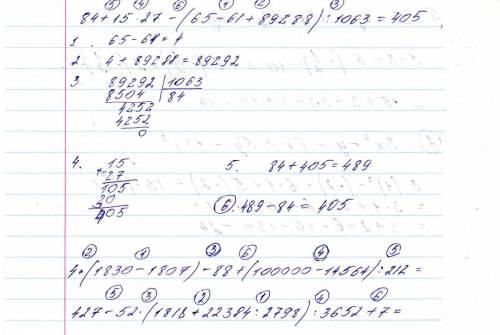 ⑤ ④ ⑥ ① ② ③
84+15·27-(65-61+89288):1063=405
1. 65-61=4
2. 4+89288=89292
3 89292 | 1063
8504 84
4252
4252
0
4. 15 5. 84+405=489
27
105 ⑥.489-84=405
30
405
② ① ③ ⑥ ④ ⑤
4·(1830-1807)-88+(100000-14564):212=
⑤ ③ ② ① ④ ⑥
427-52·(1818+22384:2798):3652+7=